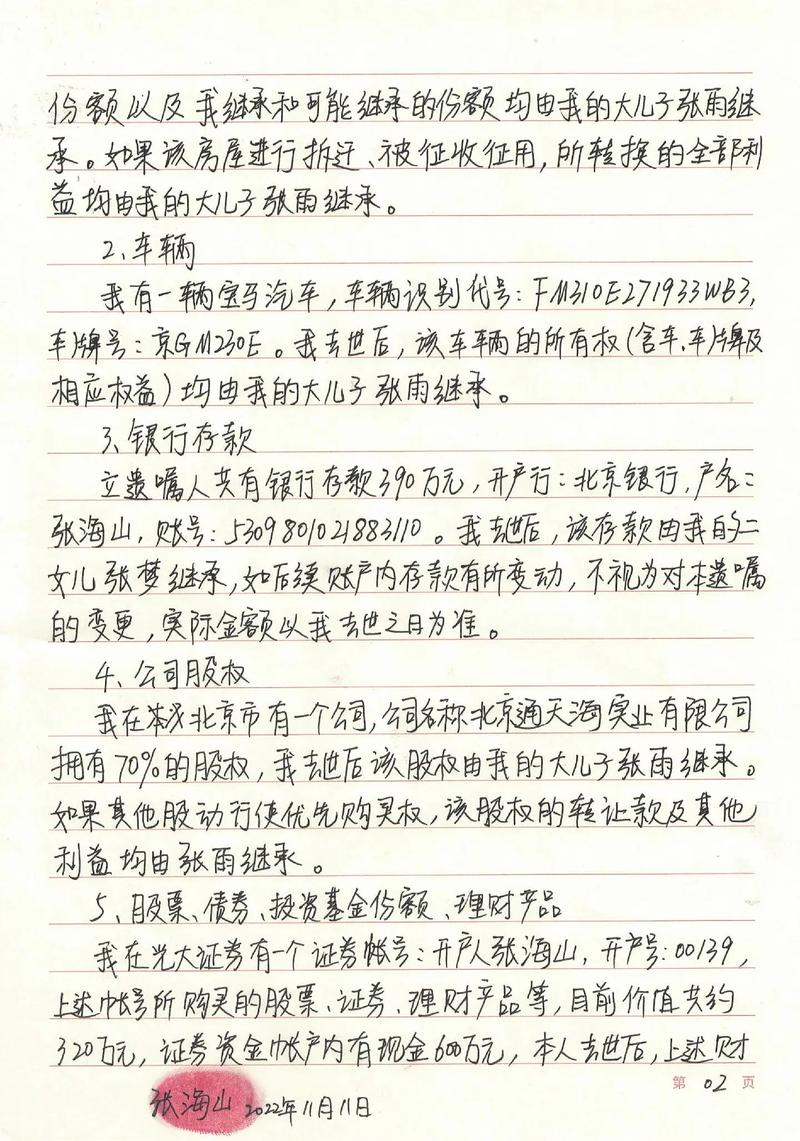 份额以及我继承和可能继承的份额均由我的大儿子张雨继
承。如果该房屋进行拆迁、被征收征用，所转换的全部利
益均由我的大儿子张雨继承。
2、车辆
我有一辆宝马汽车，车辆识别代号：FM310E271933WB3，
车牌号：京GM230E。我去世后，该车辆的所有权（含车、车牌及
相应权益）均由我的大儿子张雨继承。
3、银行存款
立遗嘱人共有银行存款390万元，开户行：北京银行，户名：
张海山，账号：5309801021883110。我去世后，该存款由我的二
女儿张梦继承，如后续账户内存款有所变动，不视为对本遗嘱
的变更，实际金额以我去世之日为准。
4、公司股权
我在北京市有一个公司，公司名称北京通天海实业有限公司
拥有70%的股权，我去世后该股权由我的大儿子张雨继承。
如果其他股动行使优先购买权，该股权的转让款及其他
利益均由张雨继承。
5、股票、债券、投资基金份额、理财产品
我在光大证券有一个证券帐号：开户人张海山，开户号：00139，
上述帐号所购买的股票、证券、理财产品等，目前价值共约
320万元，证券资金帐户内有现金600万元，本人去世后，上述财
第 02 页
张海山 2022年11月11日